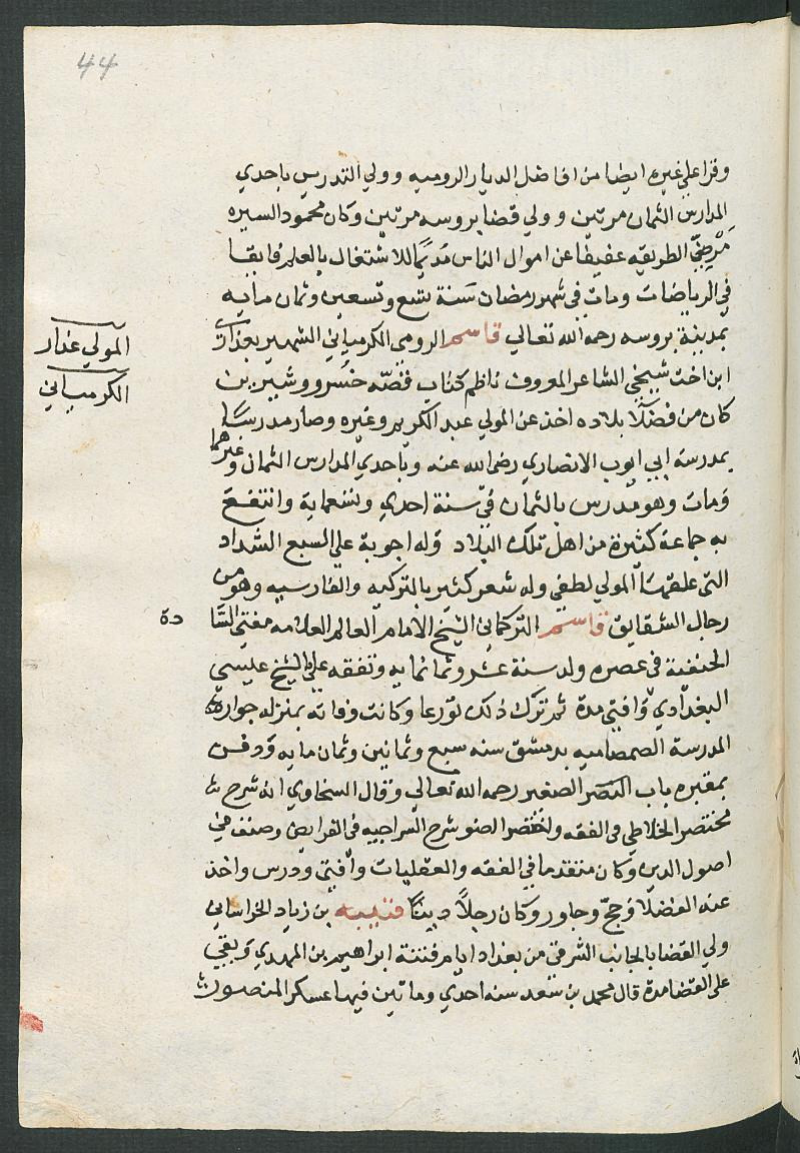 44
وقرا علي غيره ايضا من افاضل الديار الروميه وولي التدريس باحدي
المدارس الثمان مرتين وولي قضا بروسه مرتين وكان محمود السيره
مرضيّ الطريقه عفيفا عن اموال الناس مديمًا للاشتغال بالعلم فايقا
في الرياضات ومات في شهر رمضان سنة تسع وتسعين وثمان مايه
بمدينة بروسه رحمه الله تعالي قاسم الرومي الكرمياني الشهير بغداري
ابن اخت شيخي الشاعر المعروف ناظم كتاب قصّه خسرو وشيرين
كان من فضلآ بلاده اخذ عن المولي عبد الكريم وغيره وصار مدرسا
بمدرسة ابي ايوب الانصاري رضي الله عنه وباحدي المدارس الثمان وغيرهما
ومات وهو مدرس بالثمان في سنة احدي وتسعماية وانتفع
به جماعة كثيرة من اهل تلك البلاد وله اجوبة علي السبع الشداد
التي علقها المولي لطفي وله شعر كثير بالتركيه والفارسيه وهو من
رجال الشقايق قاسم التركماني الشيخ الامام العالم العلامه مفتي السّا
دة
الحنفية في عصره ولد سنة عشر وثمانمايه وتفقه علي الشيخ عيسي
البغدادي وافتي مدة ثم ترك ذلك تورعا وكانت وفاته بمنزله جوار
المدرسة الصمصاميه بدمشق سنه سبع وثمانين وثمان مايه ودفن
بمقبره باب النصر الصغير رحمه الله تعالي وقال السخاوي انه شرح
مختصر الخلاطي في الفقه ولخصر الضو شرح السراجيه في الفرايض وصنف في
اصول الدين وكان متقدما في الفقه والعقليات وافتي ودرس واخذ
عنه الفضلا وحج وجاور وكان رجلاً دينًا قتيبه بن زياد الخراساني
ولي القضا بالجانب الشرقي من بغداد ايام فتنة ابراهيم بن المهدي وبقي
علي القضا مدة قال محمد بن سعد سنه احدي وماتين فيها عسكر المنصور
المولي عذار
الكرمياني